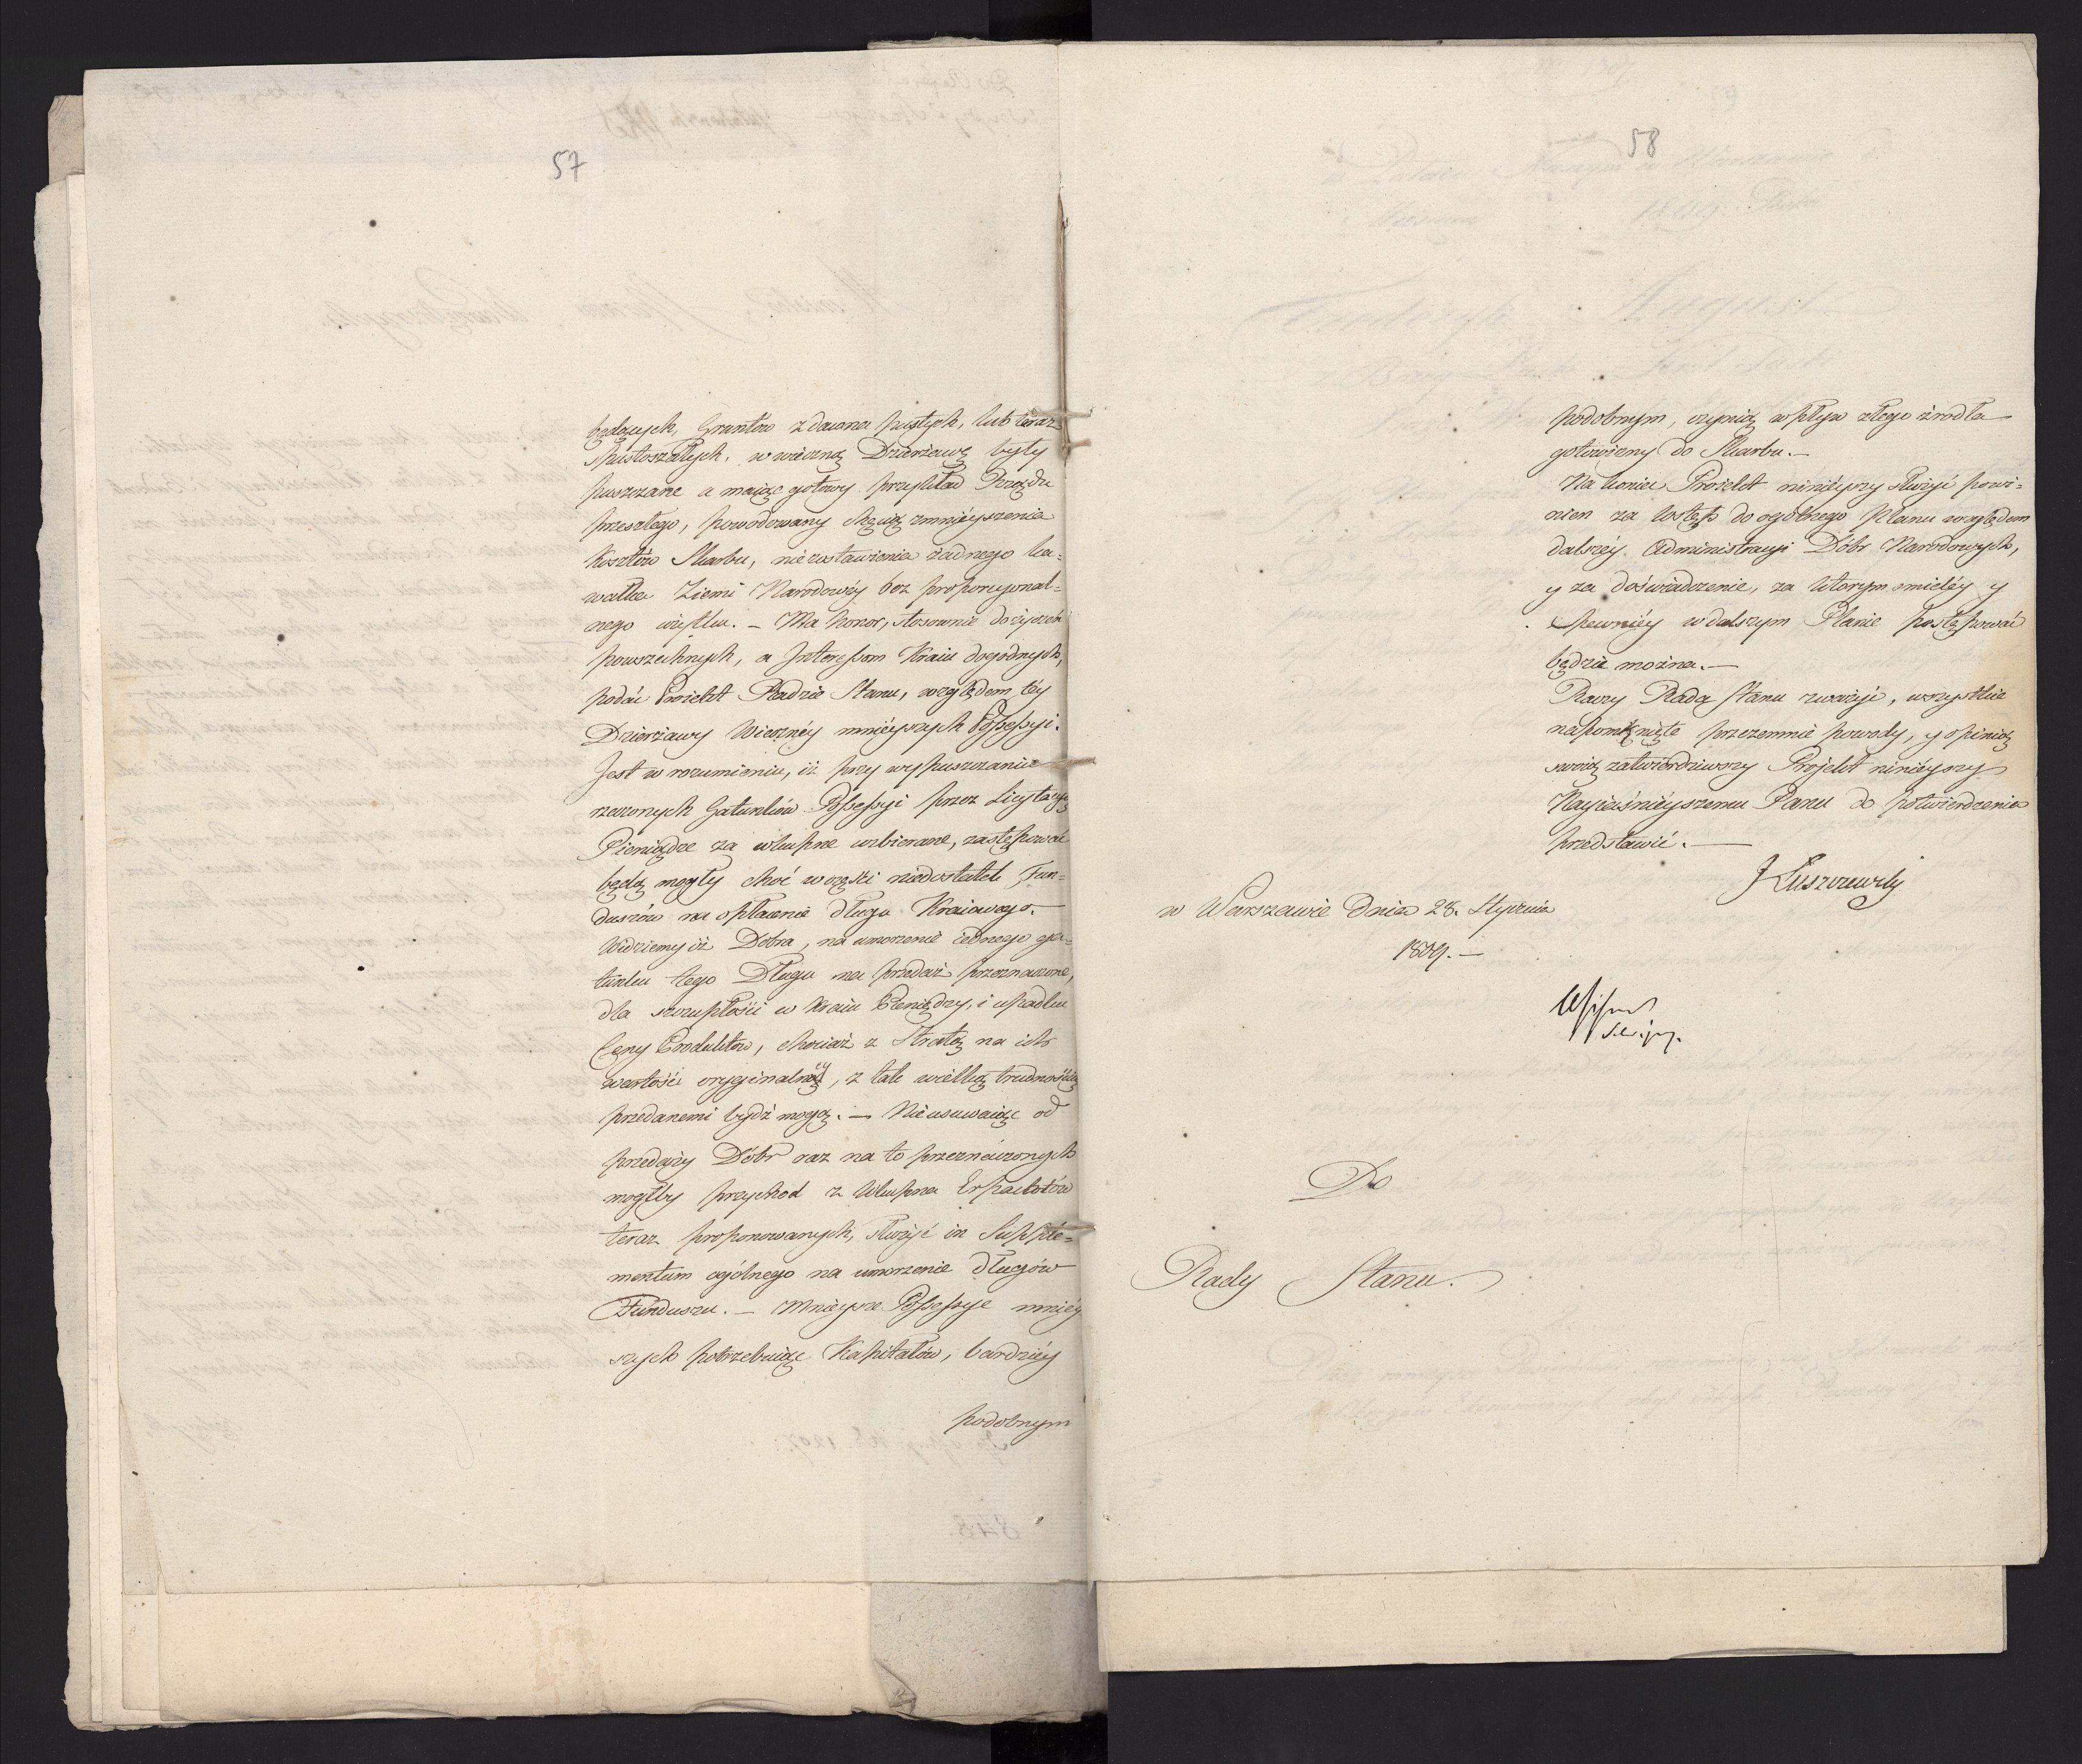 57
będących, Gruntów zdawna pustych, lub teraz
spustoszałych, w wieczną Dzierżawę były
puszczane a maiąc gotowy przykład Rządu
przeszłego, powodowany chęcią zmnieyszenia
Kosztów Skarbu, niezostawienia żadnego ka=
wałka Ziemi Narodowéy bez proporcyonal=
nego użytku. – Ma honor, stosownie do życzeń
powszechnych, a Interessom Kraiu dogodnych,
podać Proiekt Radzie Stanu, względem téy
Dzierżawy Wiecznéy mnieyszych Possessyi.
Jest w rozumieniu, iż przy wypuszczaniu
rzeczonych Gatunków Possessyi przez Licytacyą
Pieniądze za wkupne wzbierane, zastępować
będą mogły choć w części niedostatek Fun=
duszów na opłacenie długu Kraiowego.
Widziemy iż Dobra, na umorzenie iednego ga=
tunku tego Długu na przedaż przeznaczone,
dla szczupłości w Kraiu Pieniędzy, i upadku
Ceny Produktów, chociaż z Stratą na ich
wartości oryginalnéy, z tak wielką trudnością
przedanemi bydź mogą. – Nieusuwaiąc od
przedaży Dóbr raz na to przeznaczonych
mógłby przychod z Wkupna Erpachtów
teraz proponowanych, służyć in Supple=
mentum ogólnego na umorzenie długów
Funduszu. – Mnieysze Possessye mniéy=
szych potrzebuiąc Kapitałów, bardziéy
podobnym
58
podobnym, czynią wpływ z tego źrodła
gotowizny do Skarbu. –
Na koniec Proiekt ninieyszy służyć powi=
nien za Wstęp do ogólnego Planu względem
dalszéy Administracyi Dóbr Narodowych,
y za doświadczenie, za którym smieléy y
pewniéy w dalszym Planie postępować
będzie można. –
Raczy Rada Stanu zważyć, wszystkie
napomknięte przezemnie powody, y opinią
swoią zatwierdziwszy Projekt ninieyszy
Nayiaśnieyszemu Panu do potwierdzenia
przedstawić. –
J Łuszczewski
w Warszawie Dnia 28. Stycznia
1809. –
Do
Rady Stanu.